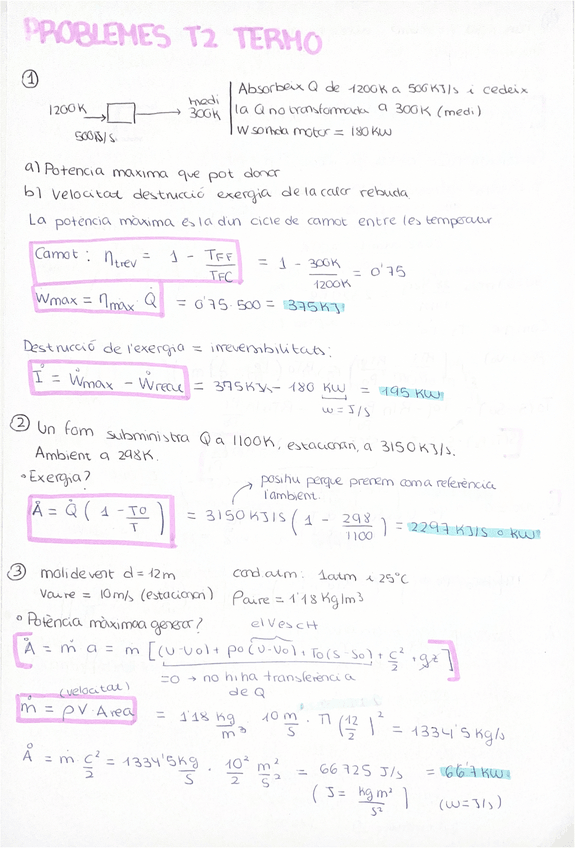 PROBLEMES T2 TERMO
①
1200K → medi 300K
500KJ/s
Absorbeix Q de 1200K a 500KJ/s i cedeix
la Q no transformada a 300K (medi)
W sortida motor = 180 KW
a) Potencia maxima que pot donar
b) Velocitat destrucció exergia de la calor rebuda
La potència màxima es la dun cicle de carnot entre les temperatur
Carnot: ηtrev = 1 - TFF/TFC = 1 - 300K/1200K = 0'75
Wmax = ηmax Q̇ = 0'75·500 = 375KJ
Destrucció de l'exergia = irreversibilitats:
İ = Ẇmax - Ẇreal = 375KJ/s - 180 KW = 195 KW
W=J/s
② Un forn subministra Q a 1100K, estacionari, a 3150KJ/s.
Ambient a 298K.
• Exergia?
positiu perque prenem com a referència
l'ambient.
Å = Q̇ (1 - T0/T) = 3150KJ/s (1 - 298/1100) = 2297 KJ/s o KW
③ moli de vent d=12m cond atm: 1atm i 25°C
Vaire = 10m/s (estacionari) ρaire = 1'18 Kg/m³
• Potència màxima a generar? el V es ct
Å = ṁ a = m [(U-U0) + P0(V-V0) + T0(S-S0) + c²/2 + gz]
=0 → no hi ha transferència
de Q
(velocitat)
ṁ = ρ V · Area = 1'18 kg/m³ 10 m/s · π (12/2)² = 1334'5 kg/s
Å = ṁ c²/2 = 1334'5 kg/s · 10²/2 m²/s² = 66725 J/s = 66'7 KW
(J = kg m²/s²) (W=J/s)